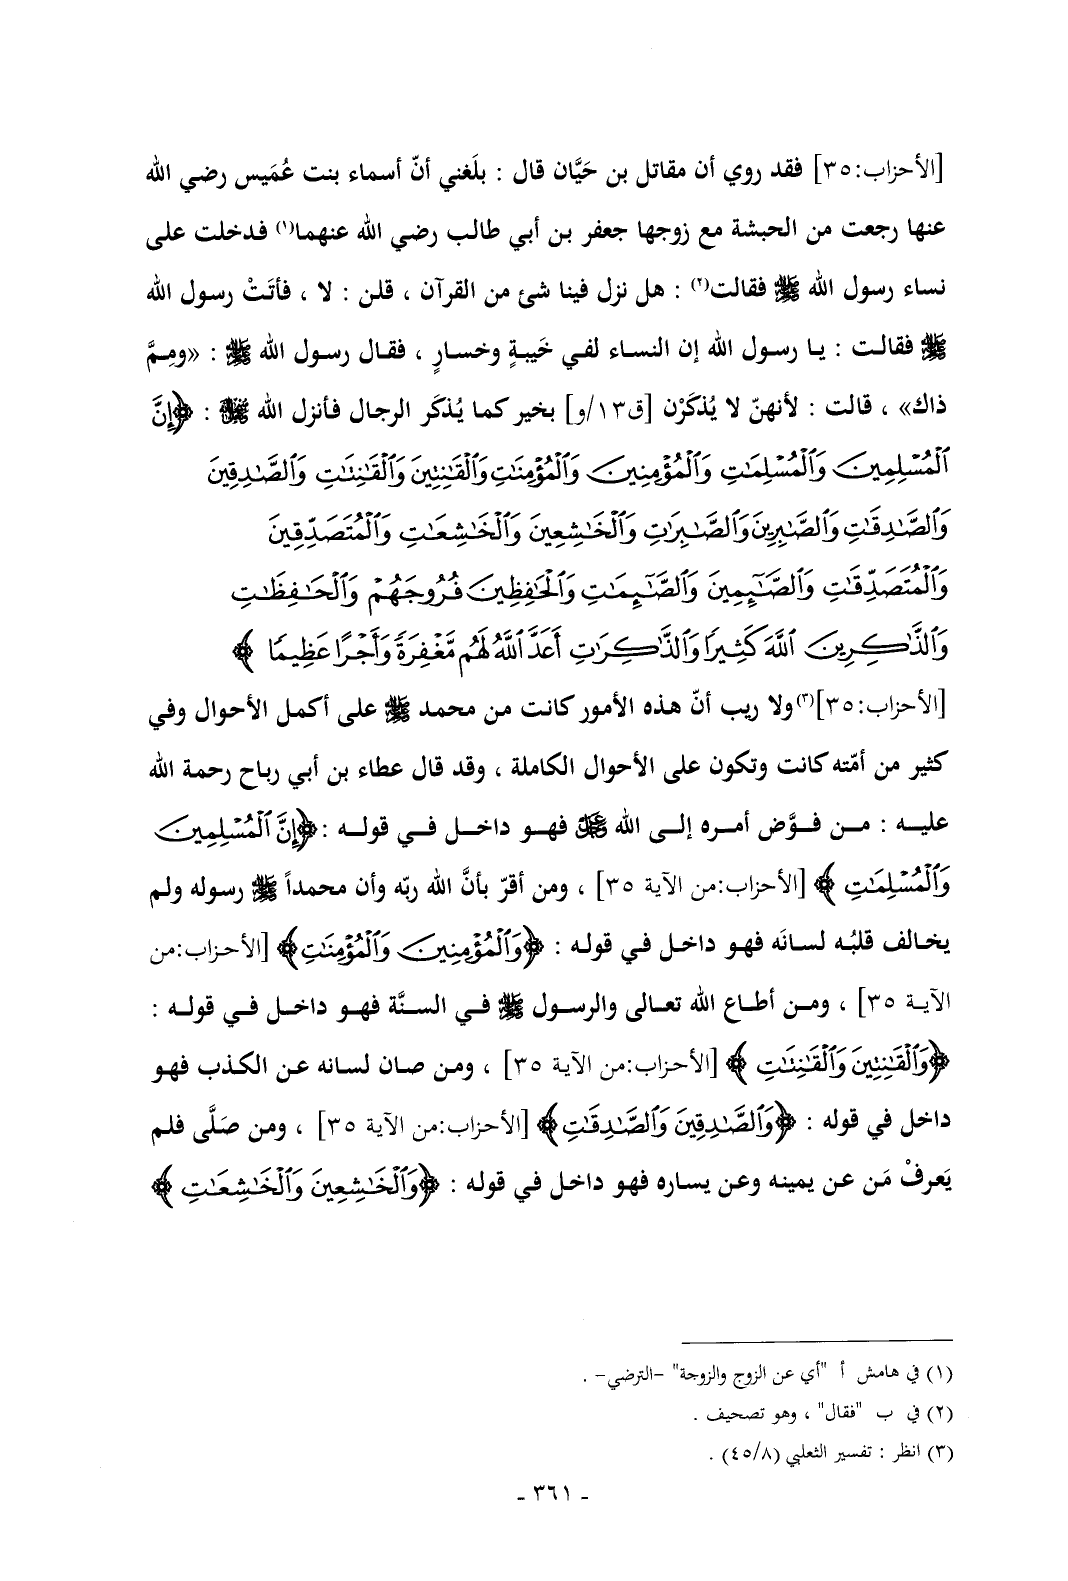 [الأحزاب:٣٥] فقد روي أن مقاتل بن حَيَّان قال : بلَغني أنّ أسماء بنت عُمَيس رضي الله
عنها رجعت من الحبشة مع زوجها جعفر بن أبي طالب رضي الله عنهما(١) فدخلت على
نساء رسول الله ﷺ فقالت(٢) : هل نزل فينا شئ من القرآن ، قلن : لا ، فأتَتْ رسول الله
ﷺ فقالت : يا رسول الله إن النساء لفي خَيبةٍ وخسارٍ ، فقال رسول الله ﷺ : «ومِمَّ
ذاك» ، قالت : لأنهنّ لا يُذكَرْن [ق١٣/و] بخير كما يُذكَر الرجال فأنزل الله ﷺ : ﴿إِنَّ
ٱلْمُسْلِمِينَ وَٱلْمُسْلِمَٰتِ وَٱلْمُؤْمِنِينَ وَٱلْمُؤْمِنَٰتِ وَٱلْقَٰنِتِينَ وَٱلْقَٰنِتَٰتِ وَٱلصَّٰدِقِينَ
وَٱلصَّٰدِقَٰتِ وَٱلصَّٰبِرِينَ وَٱلصَّٰبِرَٰتِ وَٱلْخَٰشِعِينَ وَٱلْخَٰشِعَٰتِ وَٱلْمُتَصَدِّقِينَ
وَٱلْمُتَصَدِّقَٰتِ وَٱلصَّٰٓئِمِينَ وَٱلصَّٰٓئِمَٰتِ وَٱلْحَٰفِظِينَ فُرُوجَهُمْ وَٱلْحَٰفِظَٰتِ
وَٱلذَّٰكِرِينَ ٱللَّهَ كَثِيرًا وَٱلذَّٰكِرَٰتِ أَعَدَّ ٱللَّهُ لَهُم مَّغْفِرَةً وَأَجْرًا عَظِيمًا ﴾
[الأحزاب:٣٥](٣)ولا ريب أنّ هذه الأمور كانت من محمد ﷺ على أكمل الأحوال وفي
كثير من أمّته كانت وتكون على الأحوال الكاملة ، وقد قال عطاء بن أبي رباح رحمة الله
عليه : من فوَّض أمره إلى الله ﷻ فهو داخل في قوله :﴿إِنَّ ٱلْمُسْلِمِينَ
وَٱلْمُسْلِمَٰتِ ﴾ [الأحزاب:من الآية ٣٥] ، ومن أقرّ بأنَّ الله ربّه وأن محمداً ﷺ رسوله ولم
يخالف قلبُه لسانَه فهو داخل في قوله : ﴿وَٱلْمُؤْمِنِينَ وَٱلْمُؤْمِنَٰتِ﴾ [الأحزاب:من
الآية ٣٥] ، ومن أطاع الله تعالى والرسول ﷺ في السنَّة فهو داخل في قوله :
﴿وَٱلْقَٰنِتِينَ وَٱلْقَٰنِتَٰتِ ﴾ [الأحزاب:من الآية ٣٥] ، ومن صان لسانه عن الكذب فهو
داخل في قوله : ﴿وَٱلصَّٰدِقِينَ وَٱلصَّٰدِقَٰتِ﴾ [الأحزاب:من الآية ٣٥] ، ومن صَلَّى فلم
يَعرفْ مَن عن يمينه وعن يساره فهو داخل في قوله : ﴿وَٱلْخَٰشِعِينَ وَٱلْخَٰشِعَٰتِ ﴾
(١) في هامش أ "أي عن الزوج والزوجة" -الترضي- .
(٢) في ب "فقال" ، وهو تصحيف .
(٣) انظر : تفسير الثعلبي (٤٥/٨) .
- ٣٦١ -